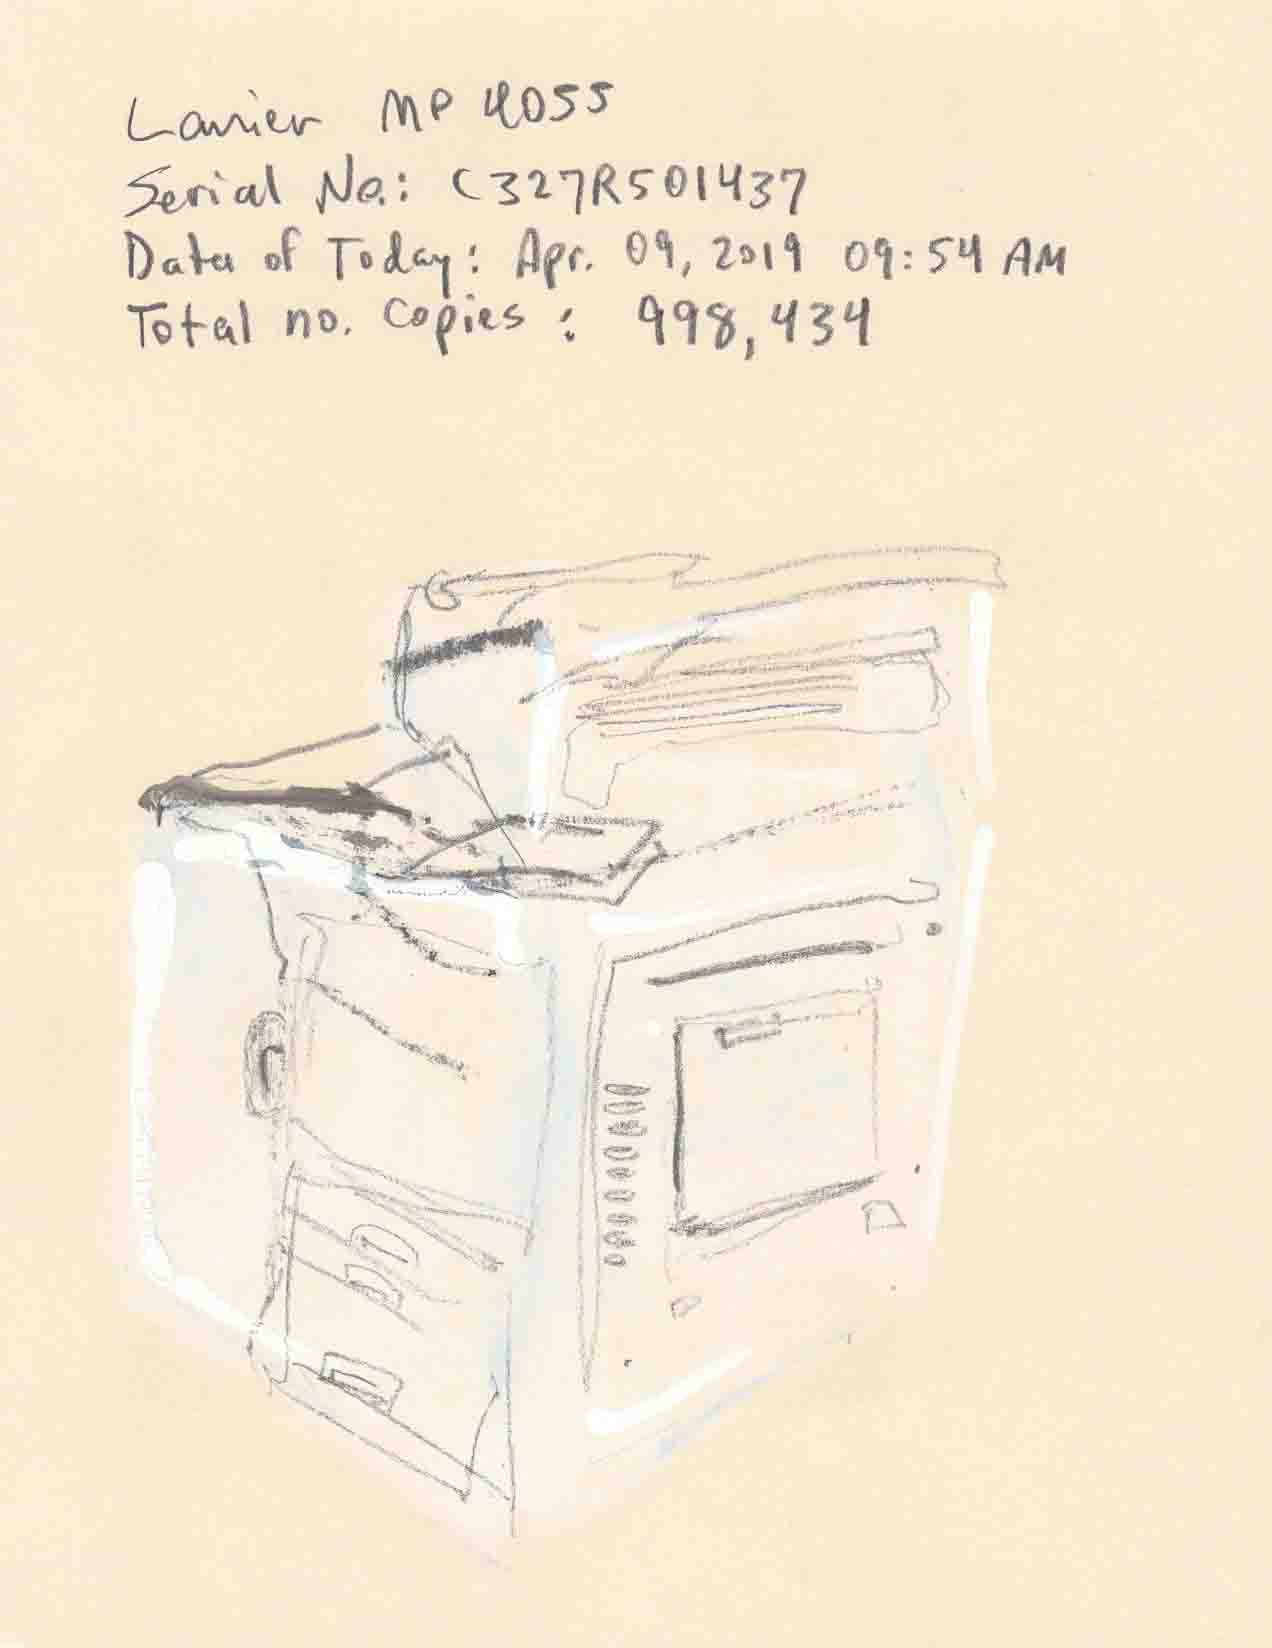 Lanier MP 4055
Serial No.: C327R501437
Date of Today: Apr. 09, 2019 09:54 AM
Total no. copies: 998,434